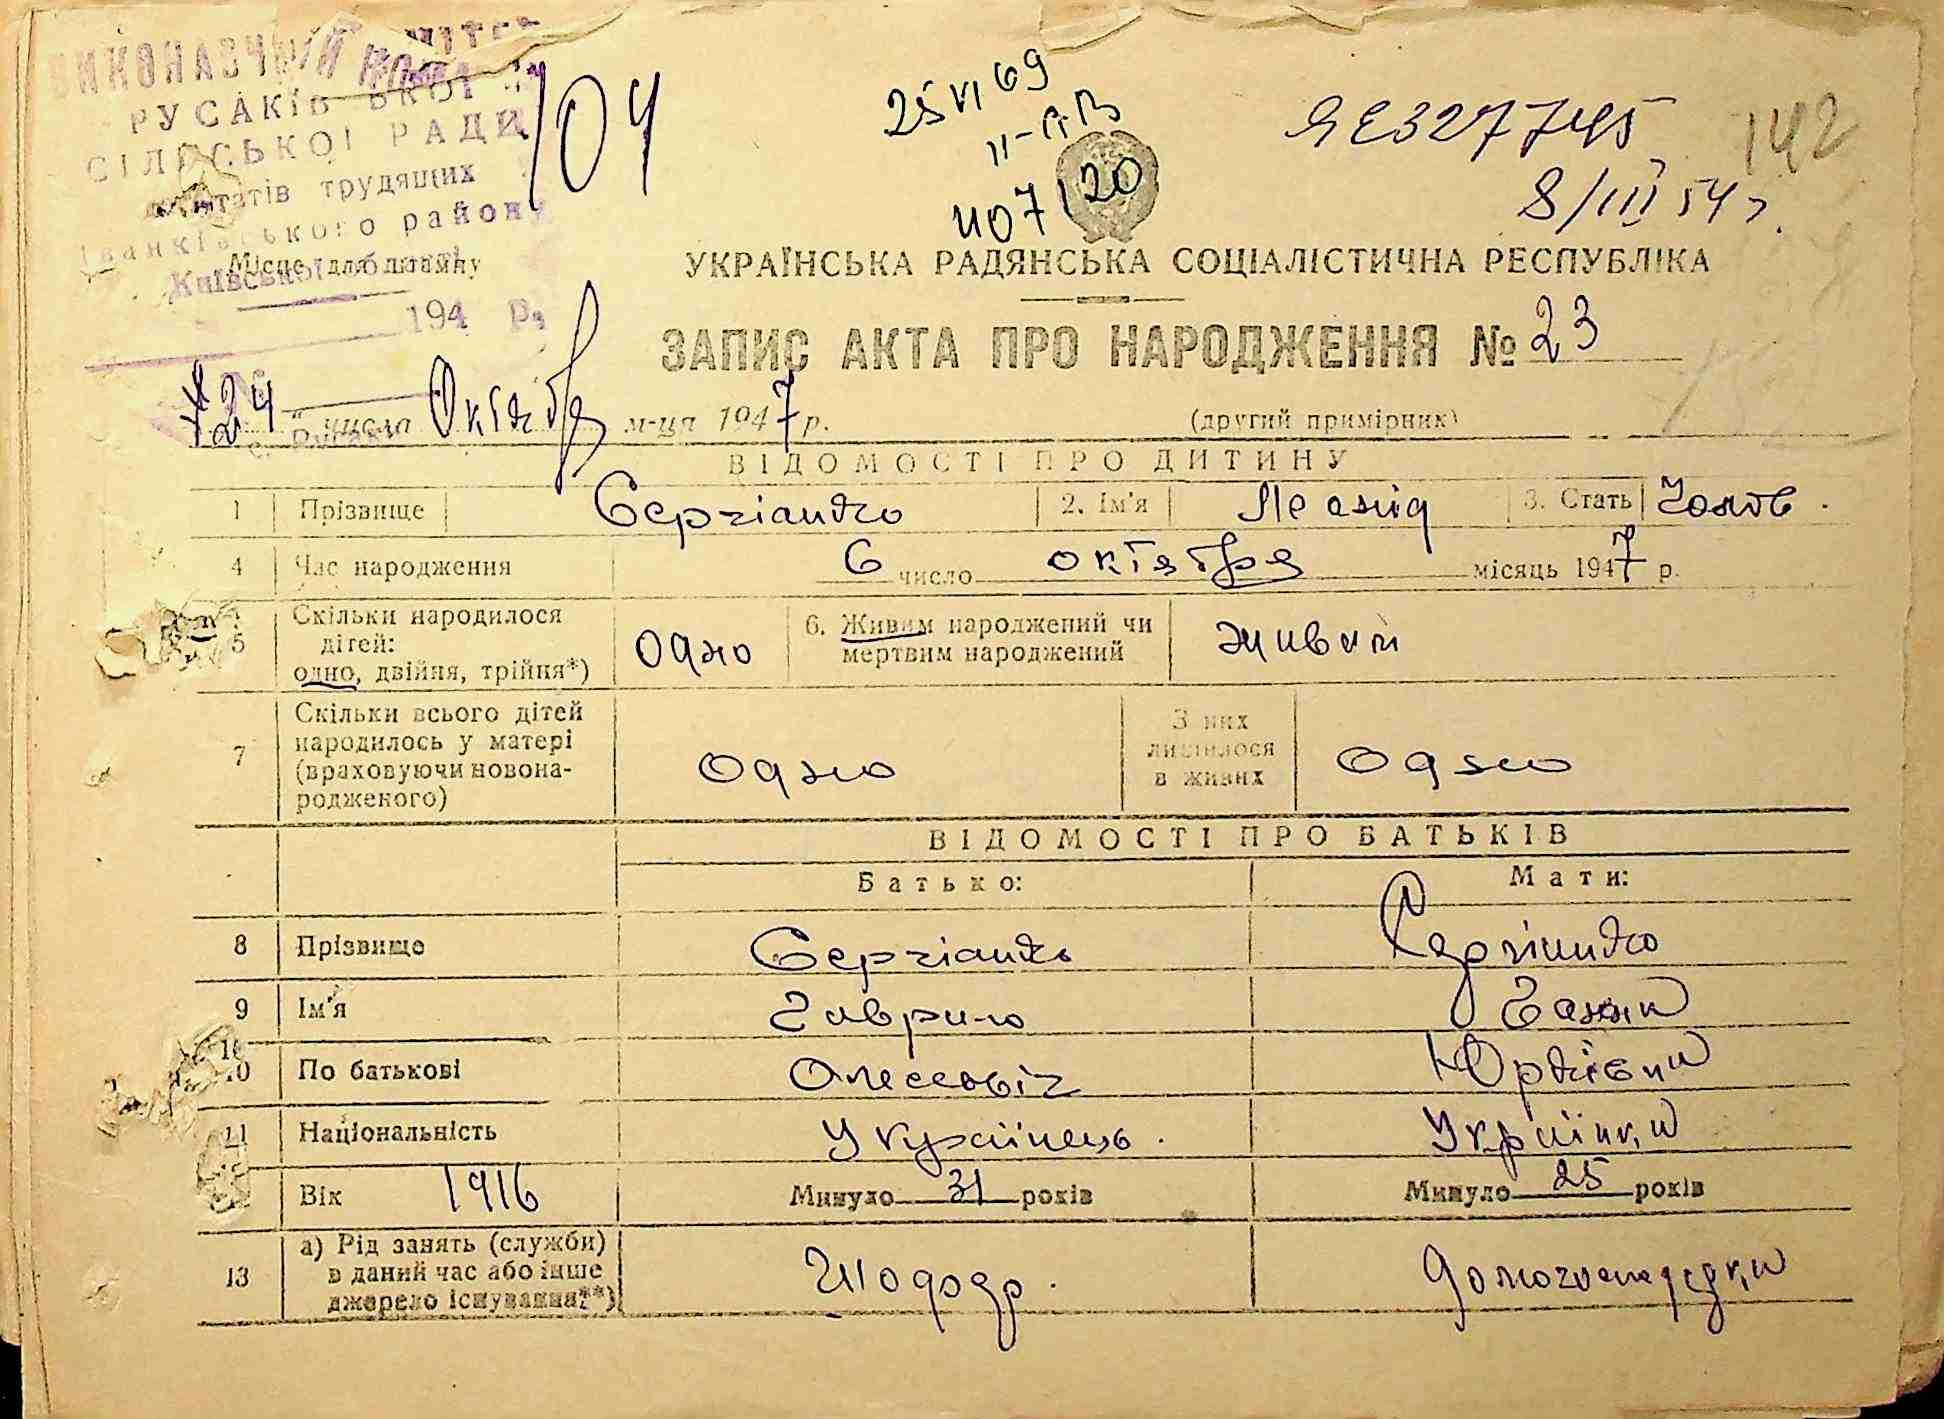 ВИКОНАВЧИЙ
РУСАКІВСЬКОЇ
СІЛЬСЬКОЇ РАДИ
депутатів трудящих
Іванківського району
Київської області
Місце для штампу
194 р.
104
25 VI 69
II-АВ
407120
ЯЕ327745
8/III 54 г.
142
УКРАЇНСЬКА РАДЯНСЬКА СОЦІАЛІСТИЧНА РЕСПУБЛІКА
ЗАПИС АКТА ПРО НАРОДЖЕННЯ № 23
24 числа Октября м-ця 1947 р. (другий примірник)
ВІДОМОСТІ ПРО ДИТИНУ
1 Прізвище Сергіенко 2. Ім'я Леонід 3. Стать Чолов.
4 Час народження 6 число октября місяць 1947 р.
5 Скільки народилося дітей: одно, двійня, трійня*) одно 6. Живим народжений чи мертвим народжений живий
7 Скільки всього дітей народилось у матері (враховуючи новонародженого) одно З них лишилося в живих одно
ВІДОМОСТІ ПРО БАТЬКІВ
Батько: Мати:
8 Прізвище Сергіенко Сергіенко
9 Ім'я Гаврило Ганна
10 По батькові Юрківна
11 Національність Українець. Українка
Вік 1916 Минуло 31 років Минуло 25 років
13 а) Рід занять (служби) в даний час або інше джерело існування**)